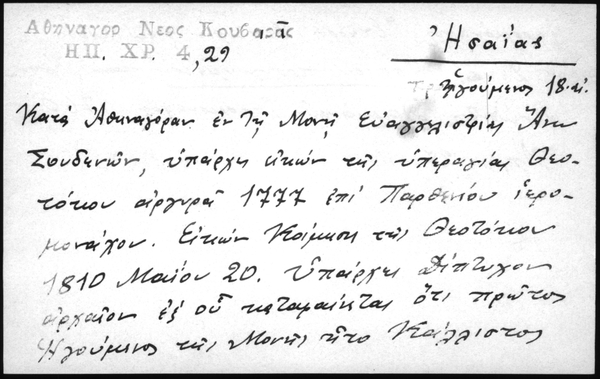 Αθηναγορ Νεος Κουβαρᾶς
ΗΠ. ΧΡ. 4, 29
Ἡσαΐας
Ἡγούμενος 18 αἰ.
Κατά Ἀθηναγόραν ἐν τῇ Μονῇ Εὐαγγελιστρίας Ἄνω
Σουδενῶν, ὑπάρχει εἰκών τῆς ὑπεραγίας Θεο-
τόκου ἀργυρᾶ 1777 ἐπί Παρθενίου ἱερο-
μονάχου. Εἰκών Κοίμησις τῆς Θεοτόκου
1810 Μαΐου 20. Ὑπάρχει Δίπτυχον
ἀρχαῖον ἐξ οὗ καταφαίνεται ὅτι πρῶτος
Ἡγούμενος τῆς Μονῆς ἦτο Κάλλιστος